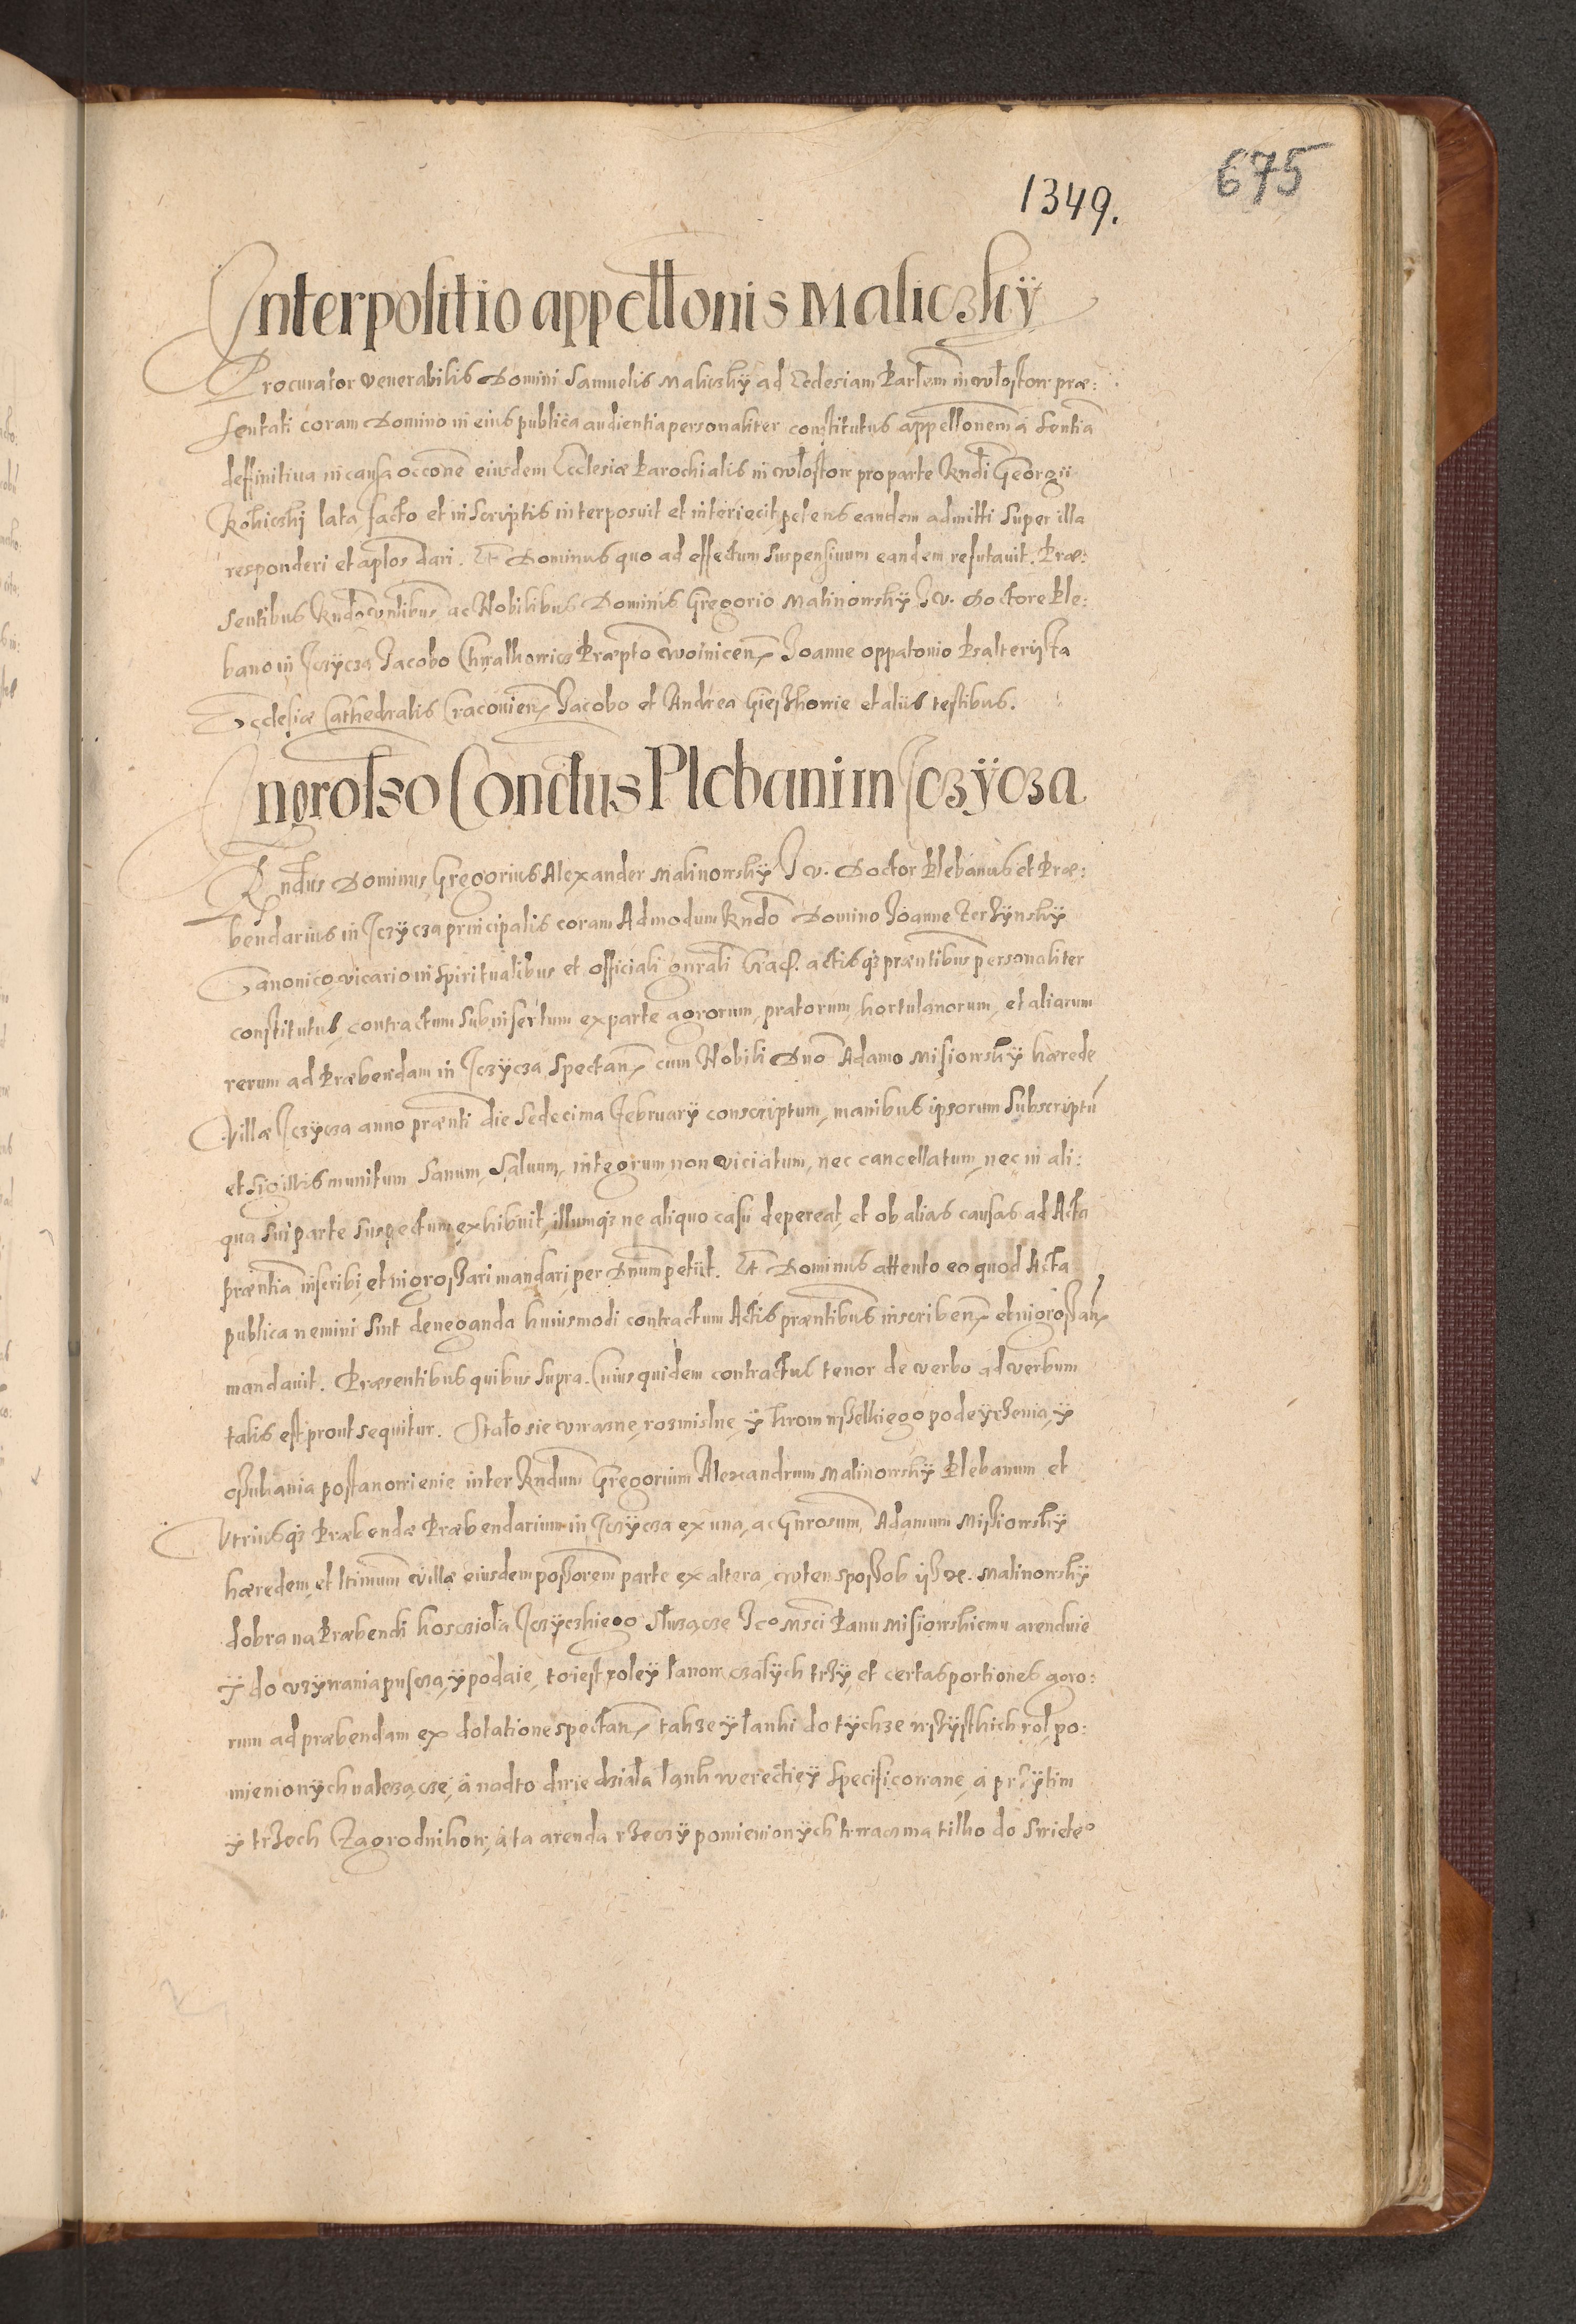 675
1349.
Interpositio appellonis Maliczky
Procurator venerabilis Domini Samuelis Maliczky ad Ecclesiam Parlem in Wlostow præ:
sentati coram Domino in eius publica audientia personaliter constitutus appellonem à sentia
deffinitiua in causa occone eiusdem Ecclesiæ Parochialis in Wlostow pro parte Rndi Georgii
lata facto et in scriptis interposuit et interiecit petens eandem admitti super illa
responderi et aplos dari. Et Dominus quo ad effectum suspensiuum eandem refutauit. Præ:
sentibus ac Nobilibus Dominis Gregorio Malinowsky I. V. Doctore Ple:
bano in Jczycza Jacobo Præpto Woinicen Joanne oppatonio Psalterista
Ecclesiæ Cathedralis Cracouien Jacobo et Andrea et aliis testibus.
Ingrosso Conctus Plebani in Jczycza
Rndus Dominus Gregorius Alexander Malinowsky I. V. Doctor Plebanus et Præ:
bendarius in Jczycza principalis coram Admodum Rndo Domino Joanne
Canonico vicario in spiritualibus et officiali gnrali Crac. actisq3 præntibus personaliter
constitutus, contractum subinsertum ex parte agrorum, pratorum, hortulanorum, et aliarum
rerum ad Præbendam in Jczycza spectan cum Nobili Dno Adamo Misiowsky hærede
villæ Jczycza anno prænti die sedecima February conscriptum, manibus ipsorum subscriptũ
et sigillis munitum sanum, saluum, integrum non viciatum, nec cancellatum, nec in ali:
qua sui parte suspectum exhibuit, illumq3 ne aliquo casu depereat, et ob alias causas ad Acta
præntia inscribi, et ingrossari mandari per Dnum petiit. Et Dominus attento eo quod Acta
publica nemini sint deneganda huiusmodi contractum Actis præntibus inscriben et ingrossan
mandauit. Præsentibus quibus supra. Cuius quidem contractus tenor de verbo ad verbum
talis est prout sequitur. Stało sie vwazne, rozmislne, ÿ krom wszelkiego podeyrzenia, ÿ
oszukania postanowienie inter Rndum Gregorium Alexandrum Malinowsky Plebanum et
Vtriusq3 Præbendæ Præbendarium in Jczycza ex una, ac Gnrosum Adamum Missiowsky
hæredem, et ltimum villæ eiusdem possorem parte ex altera, w ten sposzob isz X. Malinowsky
dobra na Præbendi kosczioła Jczyczkiego słuzącze Jeo Msci Panu Misiowskiemu arenduie
Y do vzywania puscza, ÿ podaie, to iest roley łanow czałych trzy, et certas portiones agro:
rum ad præbendam ex dotatione spectan takze ÿ łanki do tychze wszystkich rol po:
mienionych nalezącze, à nadto dwie działa łąnk w erectiey specificowane, à przytim
ÿ trzech Zagrodnikow, à ta arenda rzeczy pomienionych trwacz ma tilko do Swieteo